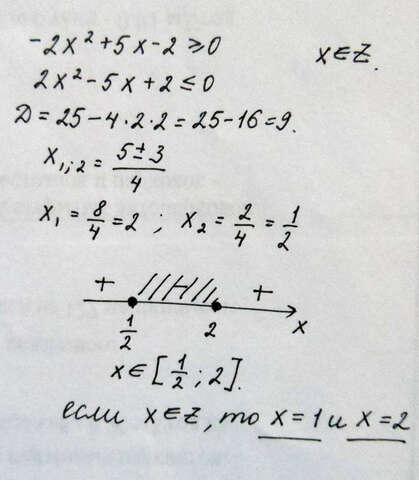 -2x² + 5x - 2 ≥ 0
x ∈ Z.
2x² - 5x + 2 ≤ 0
D = 25 - 4 · 2 · 2 = 25 - 16 = 9.
x₁,;₂ = (5 ± 3)/4
x₁ = 8/4 = 2 , x₂ = 2/4 = 1/2
+ - +
1/2 2 x
x ∈ [1/2 ; 2].
если x ∈ Z то x = 1 и x = 2